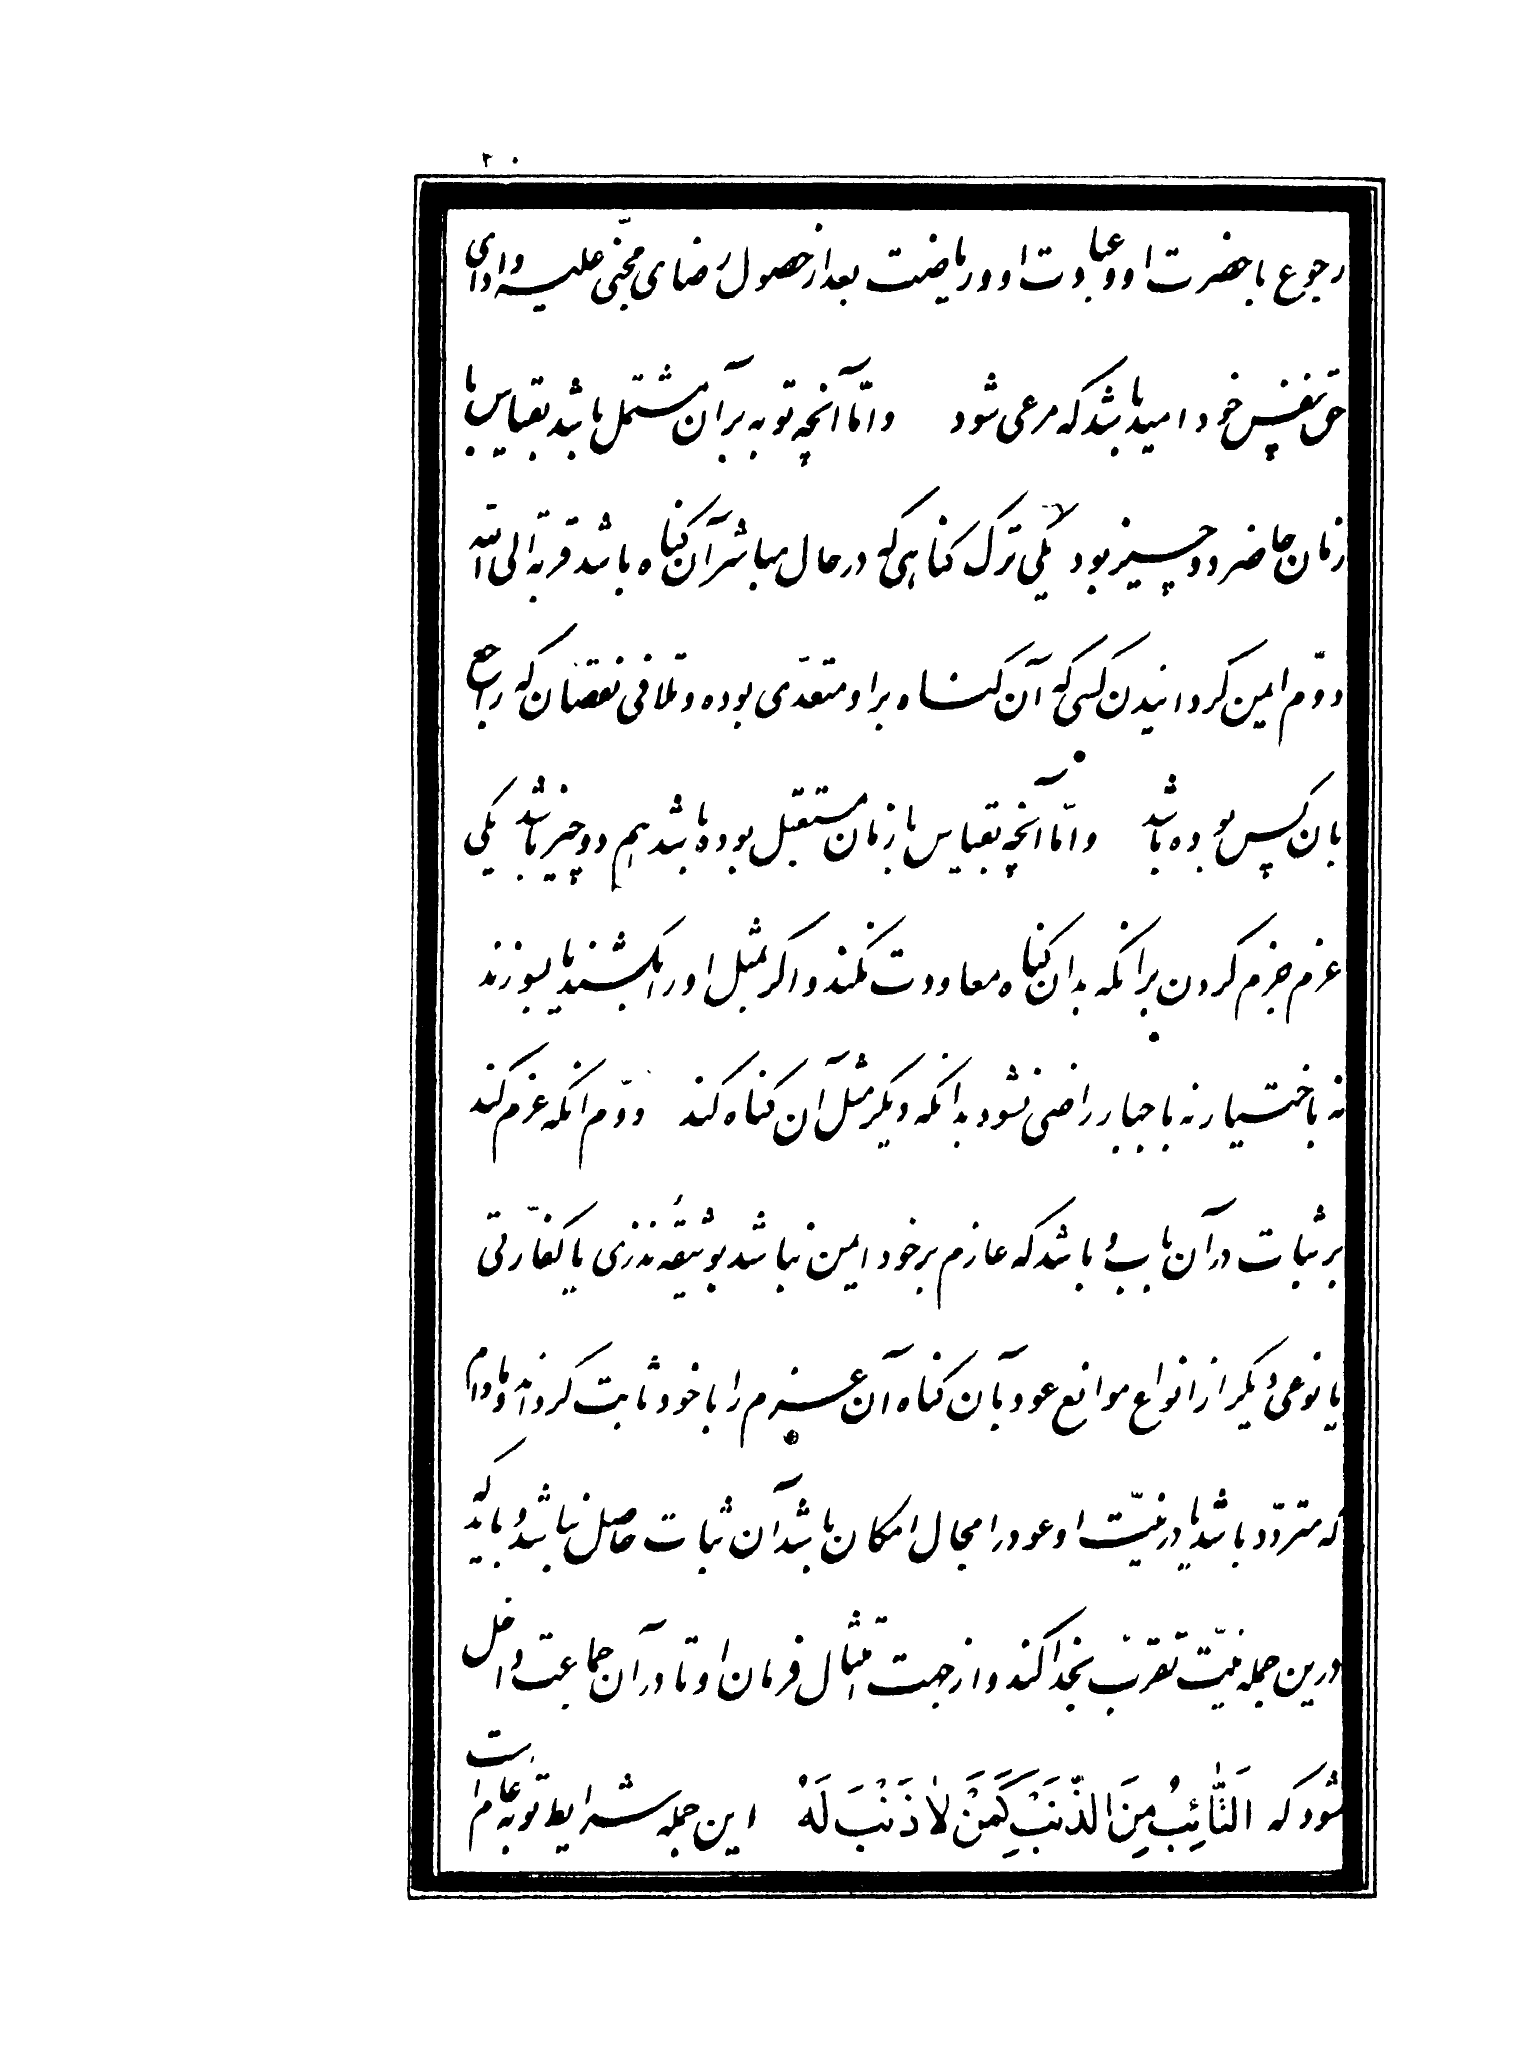 ۲۰
رجوع با حضرت او و عبادت او و ریاضت بعد از حصول رضای مجنی علیه و ادای
حق نفس خود امید باشد که مرعی شود و امّا آنچه توبه بر آن مشتمل باشد بقیاس با
زمان حاضر دو چیز بود یکی ترک کناهی که در حال مباشر آن کناه باشد قربة الی الله
دوّم ایمن کردانیدن کسی که آن کناه بر او متعدّی بوده و تلافی نقصان که راجع
بان کس بوده باشد و امّا آنچه بقیاس با زمان مستقبل بوده باشد هم دو چیز باشد یکی
عزم جزم کردن بر انکه بدان کناه معاودت نکند و اکر بمثل او را بکشند یا بسوزند
نه باختیار نه باجبار راضی نشود بدانکه دیکر مثل آن کناه کند دوّم انکه عزم کند
بر ثبات در آن باب و باشد که عازم بر خود ایمن نباشد بوثیقه نذری یا کفّارتی
یا نوعی دیکر از انواع موانع عود بآن کناه آن عزم را با خود ثابت کرداند و مادام
که متردّد باشد یا در نیّت او عود را مجال امکان باشد آن ثبات حاصل نباشد و باید که
درین جمله نیّت تقرّب بخدا کند و از جهت امتثال فرمان او تا در آن جماعت داخل
شود که اَلتّٰائِبُ مِنَ الذَّنَبْ کَمَنْ لاٰ ذَنْبَ لَهْ این جمله شرایط توبه عام است